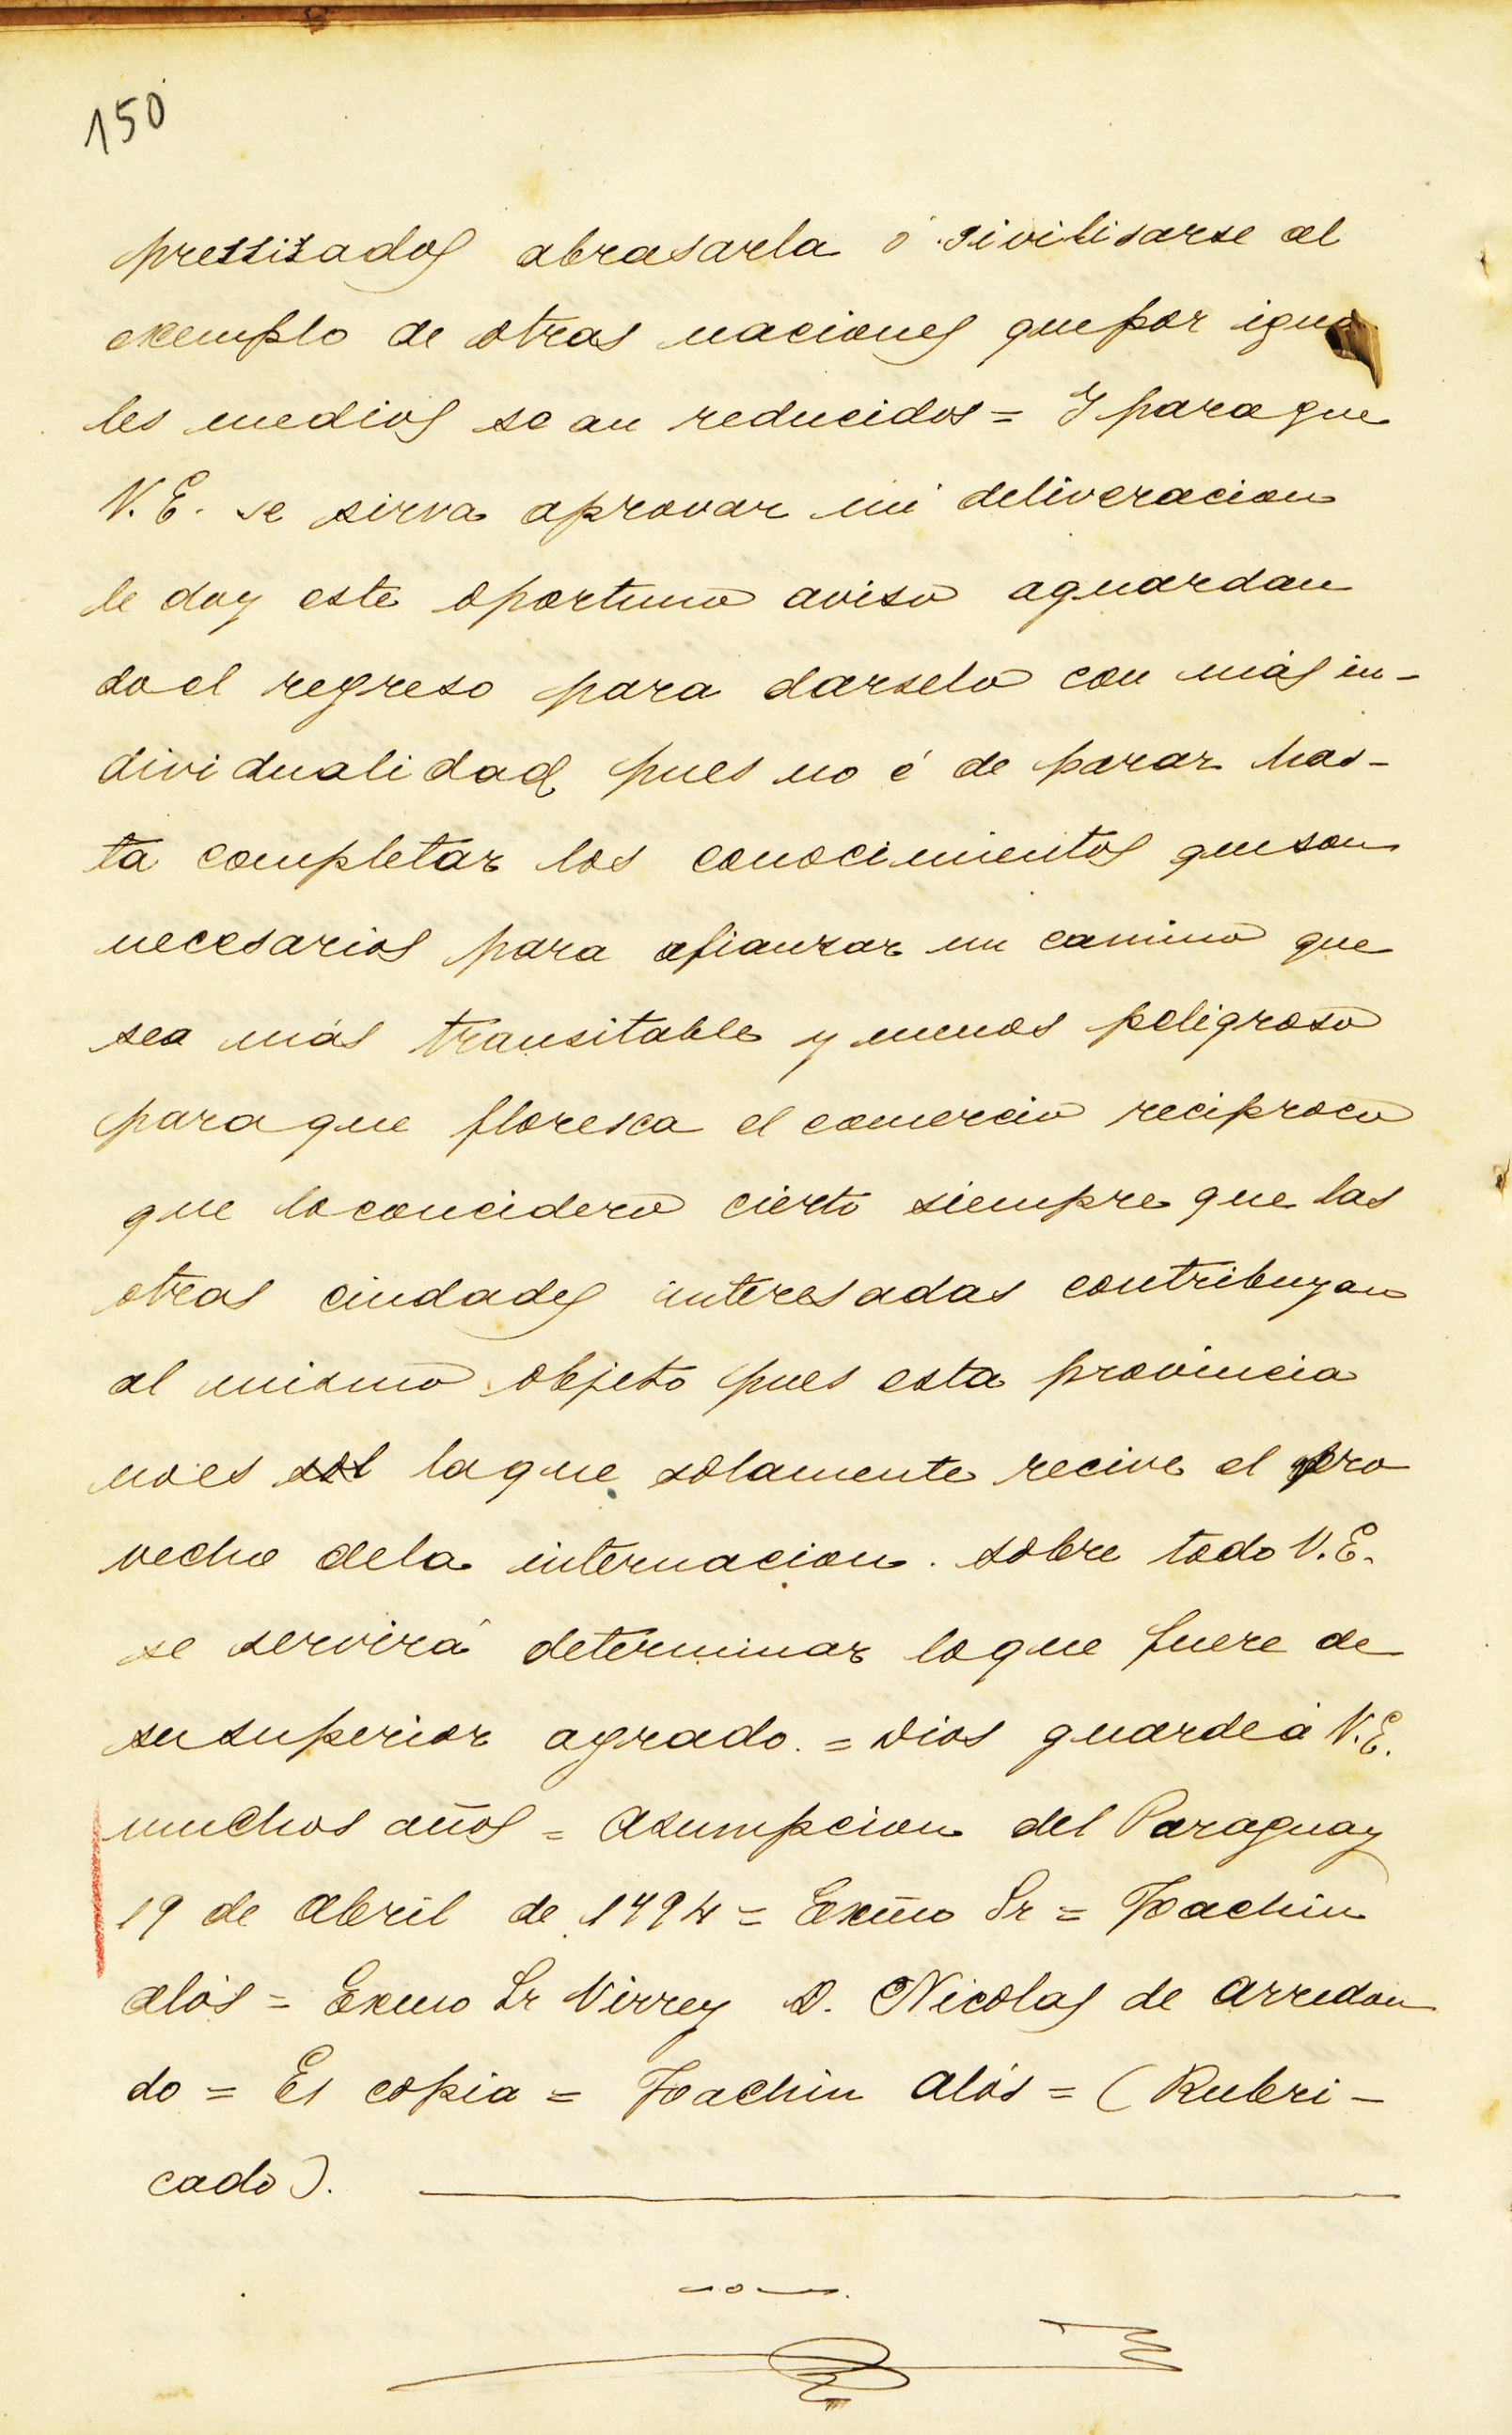 150
pressisados abrasarla ó sivilisarse al
exemplo de otras naciones quepor igua
les medios se an reducidos = Y paraque
V. E. se sirva aprovar mi deliveracion
le doy este oportuno aviso aguardan
do el regreso para darselo con más in-
dividualidad pues no é de parar has-
ta completar los conocimientos queson
necesarios para afianzar un camino que
sea más transitable y menos peligroso
paraque floresca el comercio reciproco
que loconcidero cierto siempre que las
otras ciudades interesadas contribuyan
al mismo objeto pues esta provincia
noes sol laque solamente recive el pro
vecho dela internacion. sobre todo V. E.
se servirá determinar loque fuere de
susuperior agrado. = Dios guardeá V. E.
muchos años = Asumpcion del Paraguay
19 de Abril de 1794 = Exm̃o Sr = Joachin
Alós = Exmo Sr Virrey D. Nicolas de Arredon
do = Es copia = Joachin Alós = (Rubri-
cado).